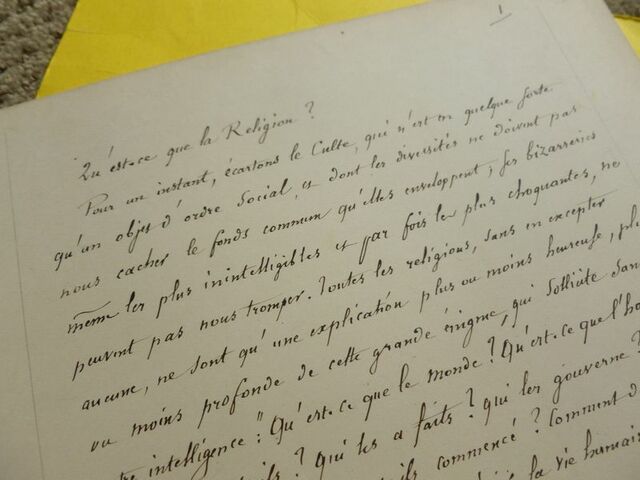 1
Qu'est-ce que la Religion ?
Pour un instant, écartons le Culte, qui n'est en quelque sorte
qu'un objet d'ordre Social, et dont les diversités ne doivent pas
nous cacher le fonds commun qu'elles enveloppent ; ses bizarreries
même les plus inintelligibles et par fois les plus choquantes, ne
peuvent pas nous tromper. Toutes les religions, sans en excepter
aucune, ne sont qu'une explication plus ou moins heureuse, plu
ou moins profonde de cette grande énigme, qui sollicite san
tre intelligence : "Qu'est-ce que le monde ? Qu'est-ce que l'ho
ils ? Qui les a faits ? qui les gouverne ?
ils commencé ? Comment d
la vie humain